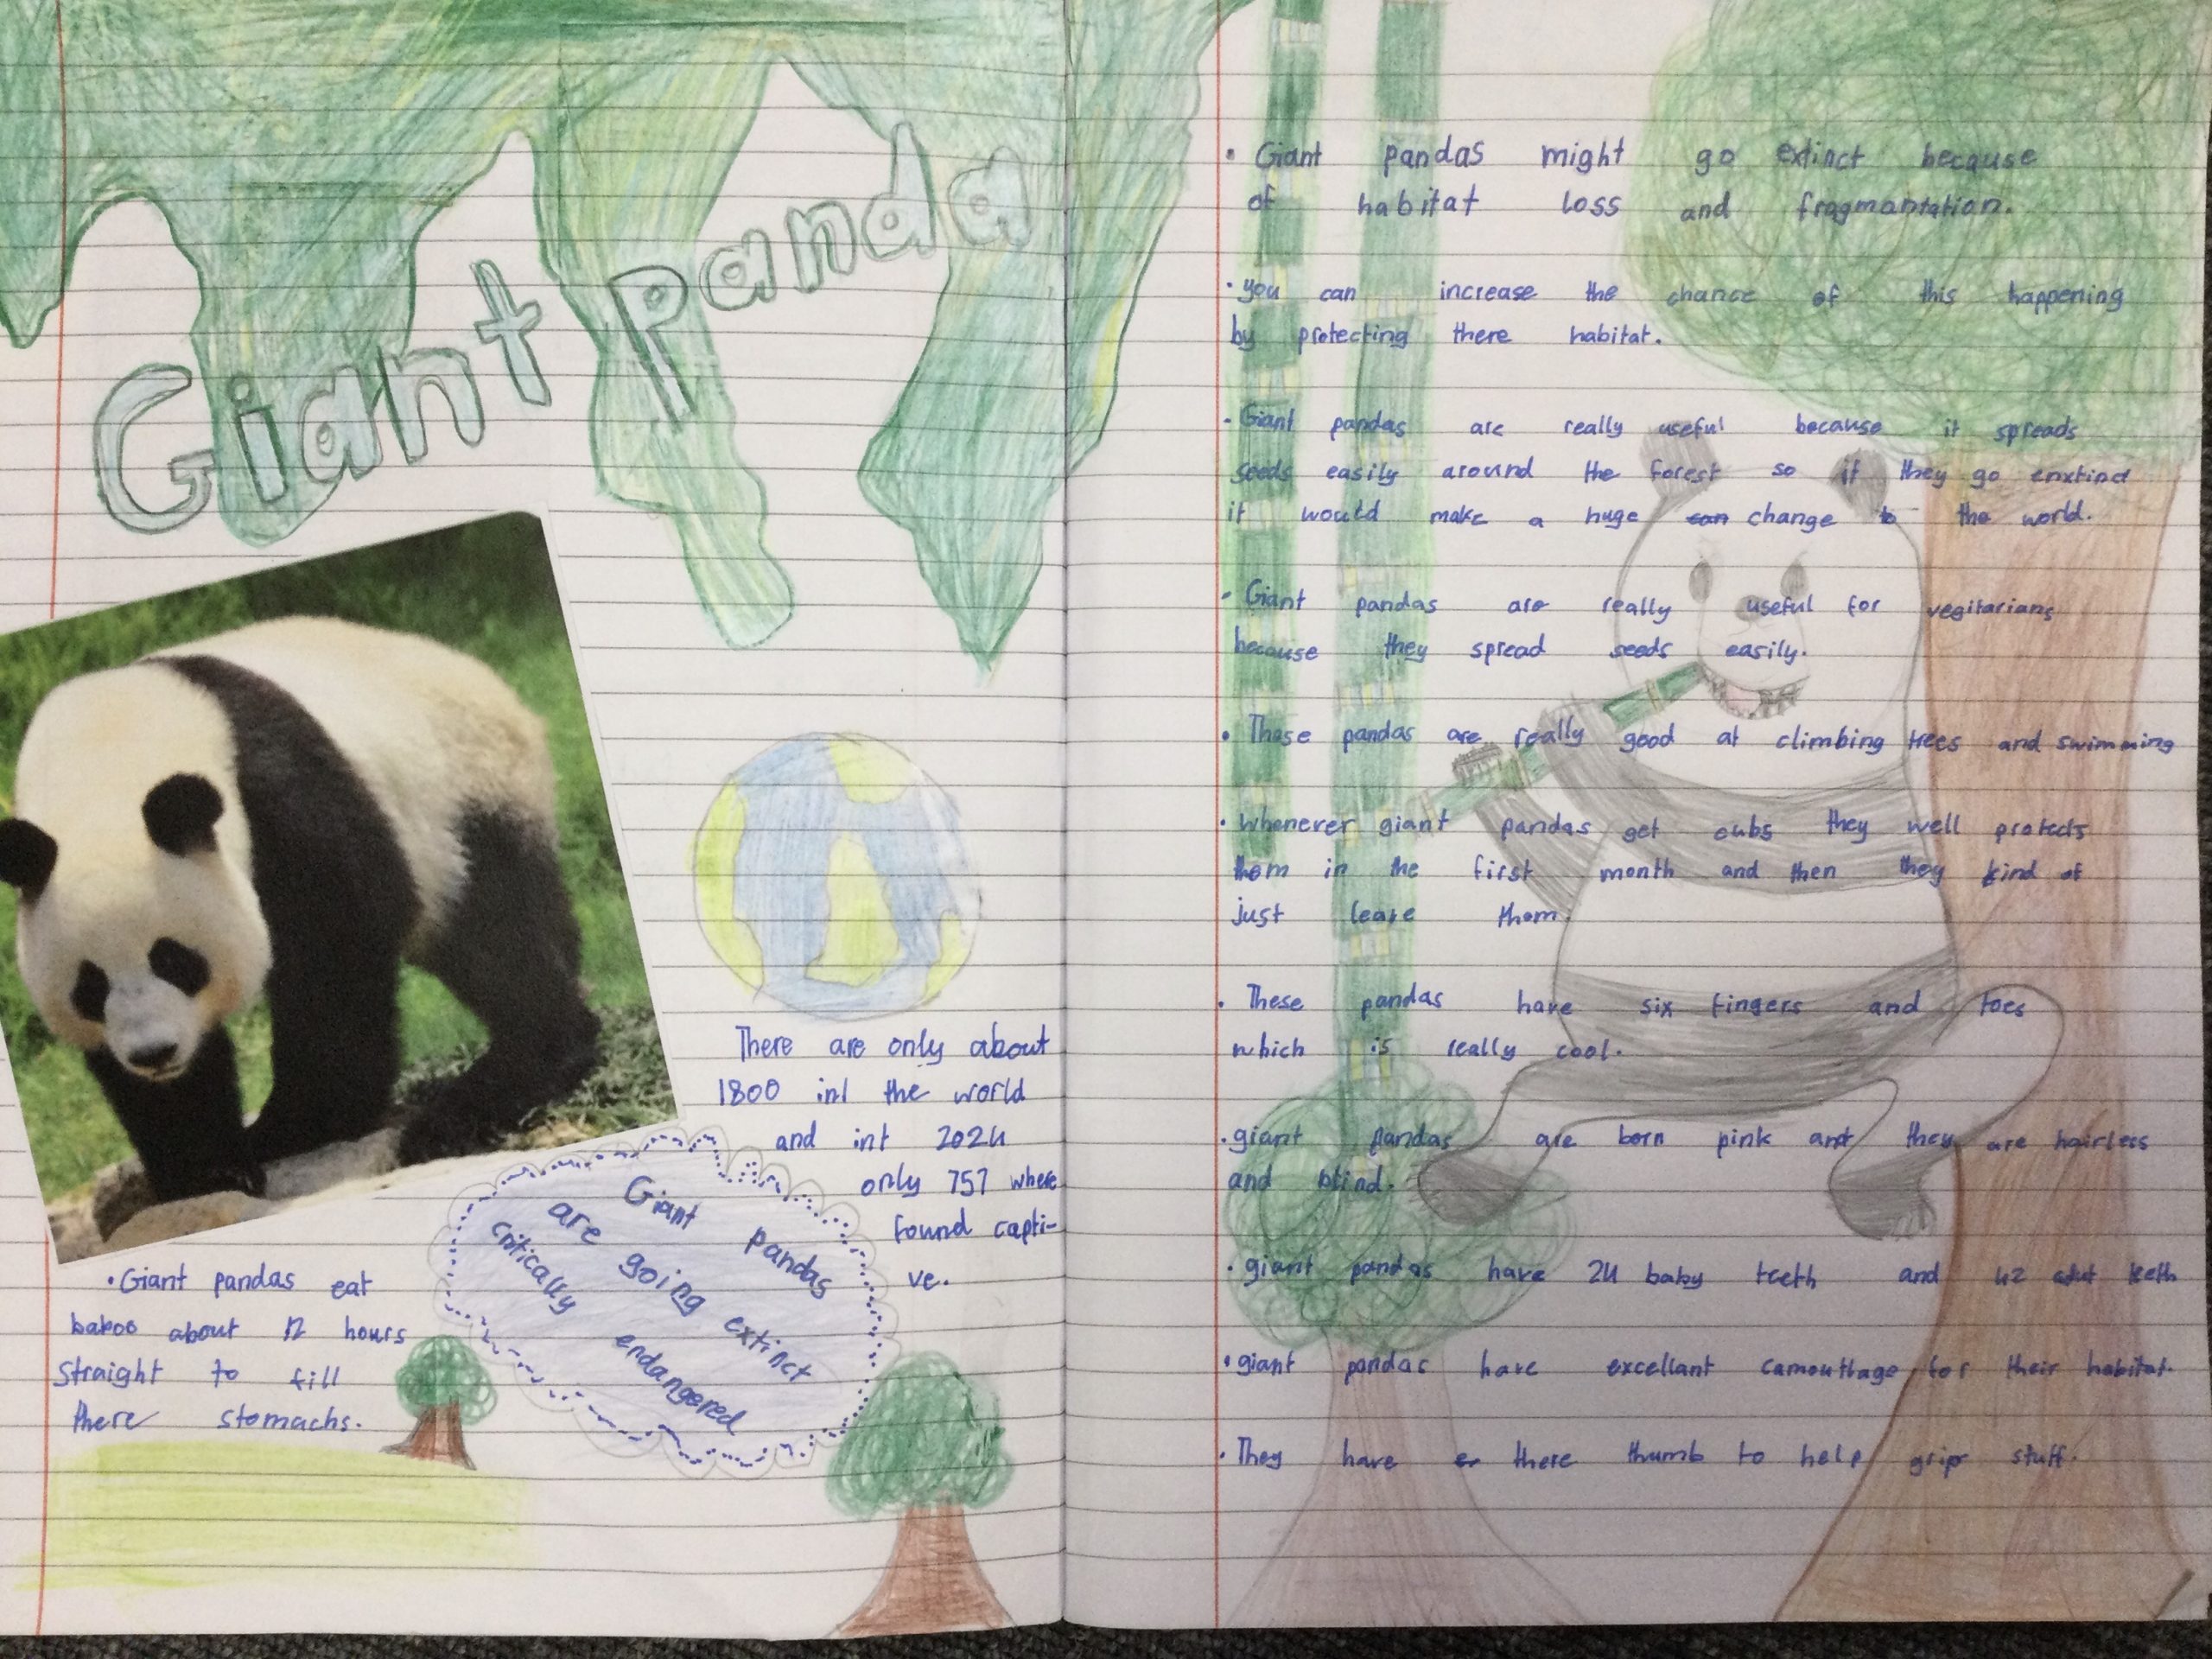 Giant Panda
There are only about
1800 inl the world
and int 2024
only 757 where
found capti-
ve.
Giant pandas
are going extinct
critically endangered
•Giant pandas eat
baboo about 12 hours
straight to fill
there stomachs.
• Giant pandas might go extinct because
of habitat loss and fragmantation.
•you can increase the chance of this happening
by protecting there habitat.
- Giant pandas are really useful because it spreads
seeds easily around the forest so if they go enxtinct
it would make a huge can change to the world.
- Giant pandas are really useful for vegitarians
because they spread seeds easily.
• These pandas are really good at climbing trees and swimming
• Whenever giant pandas get cubs they well protects
them in the first month and then they kind of
just leave them.
• These pandas have six fingers and toes
which is really cool.
•giant pandas are born pink and they are hairless
and blind.
• giant pandas have 24 baby teeth and 42 adut teeth
•giant pandas have excellant camouflage for their habitat.
•They have er there thumb to help grip stuff.